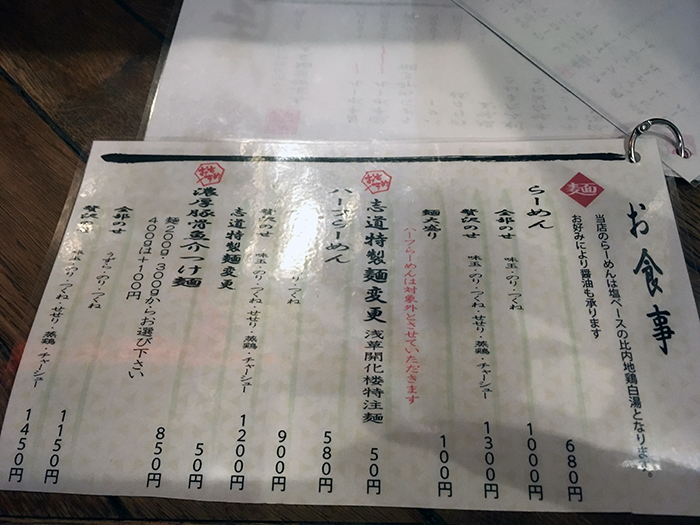 お食事
麺
当店のらーめんは塩ベースの比内地鶏白湯となります。
お好みにより醤油も承ります
らーめん 680円
全部のせ 味玉・のり・つくね 1000円
贅沢のせ 味玉・のり・つくね・せせり・蒸鶏・チャーシュー 1300円
麺大盛り 100円
ハーフらーめんは対象外とさせていただきます
おすすめ
志道特製麺変更 浅草開化楼特注麺 50円
ハーフらーめん 580円
のり・つくね 900円
贅沢のせ 味玉・のり・つくね・せせり・蒸鶏・チャーシュー 1200円
志道特製麺変更 50円
おすすめ
濃厚豚骨魚介つけ麺 850円
麺200g・300gからお選び下さい
400gは+100円
全部のせ うずら・のり・つくね 1150円
贅沢 味玉・のり・つくね・せせり・蒸鶏・チャーシュー 1450円